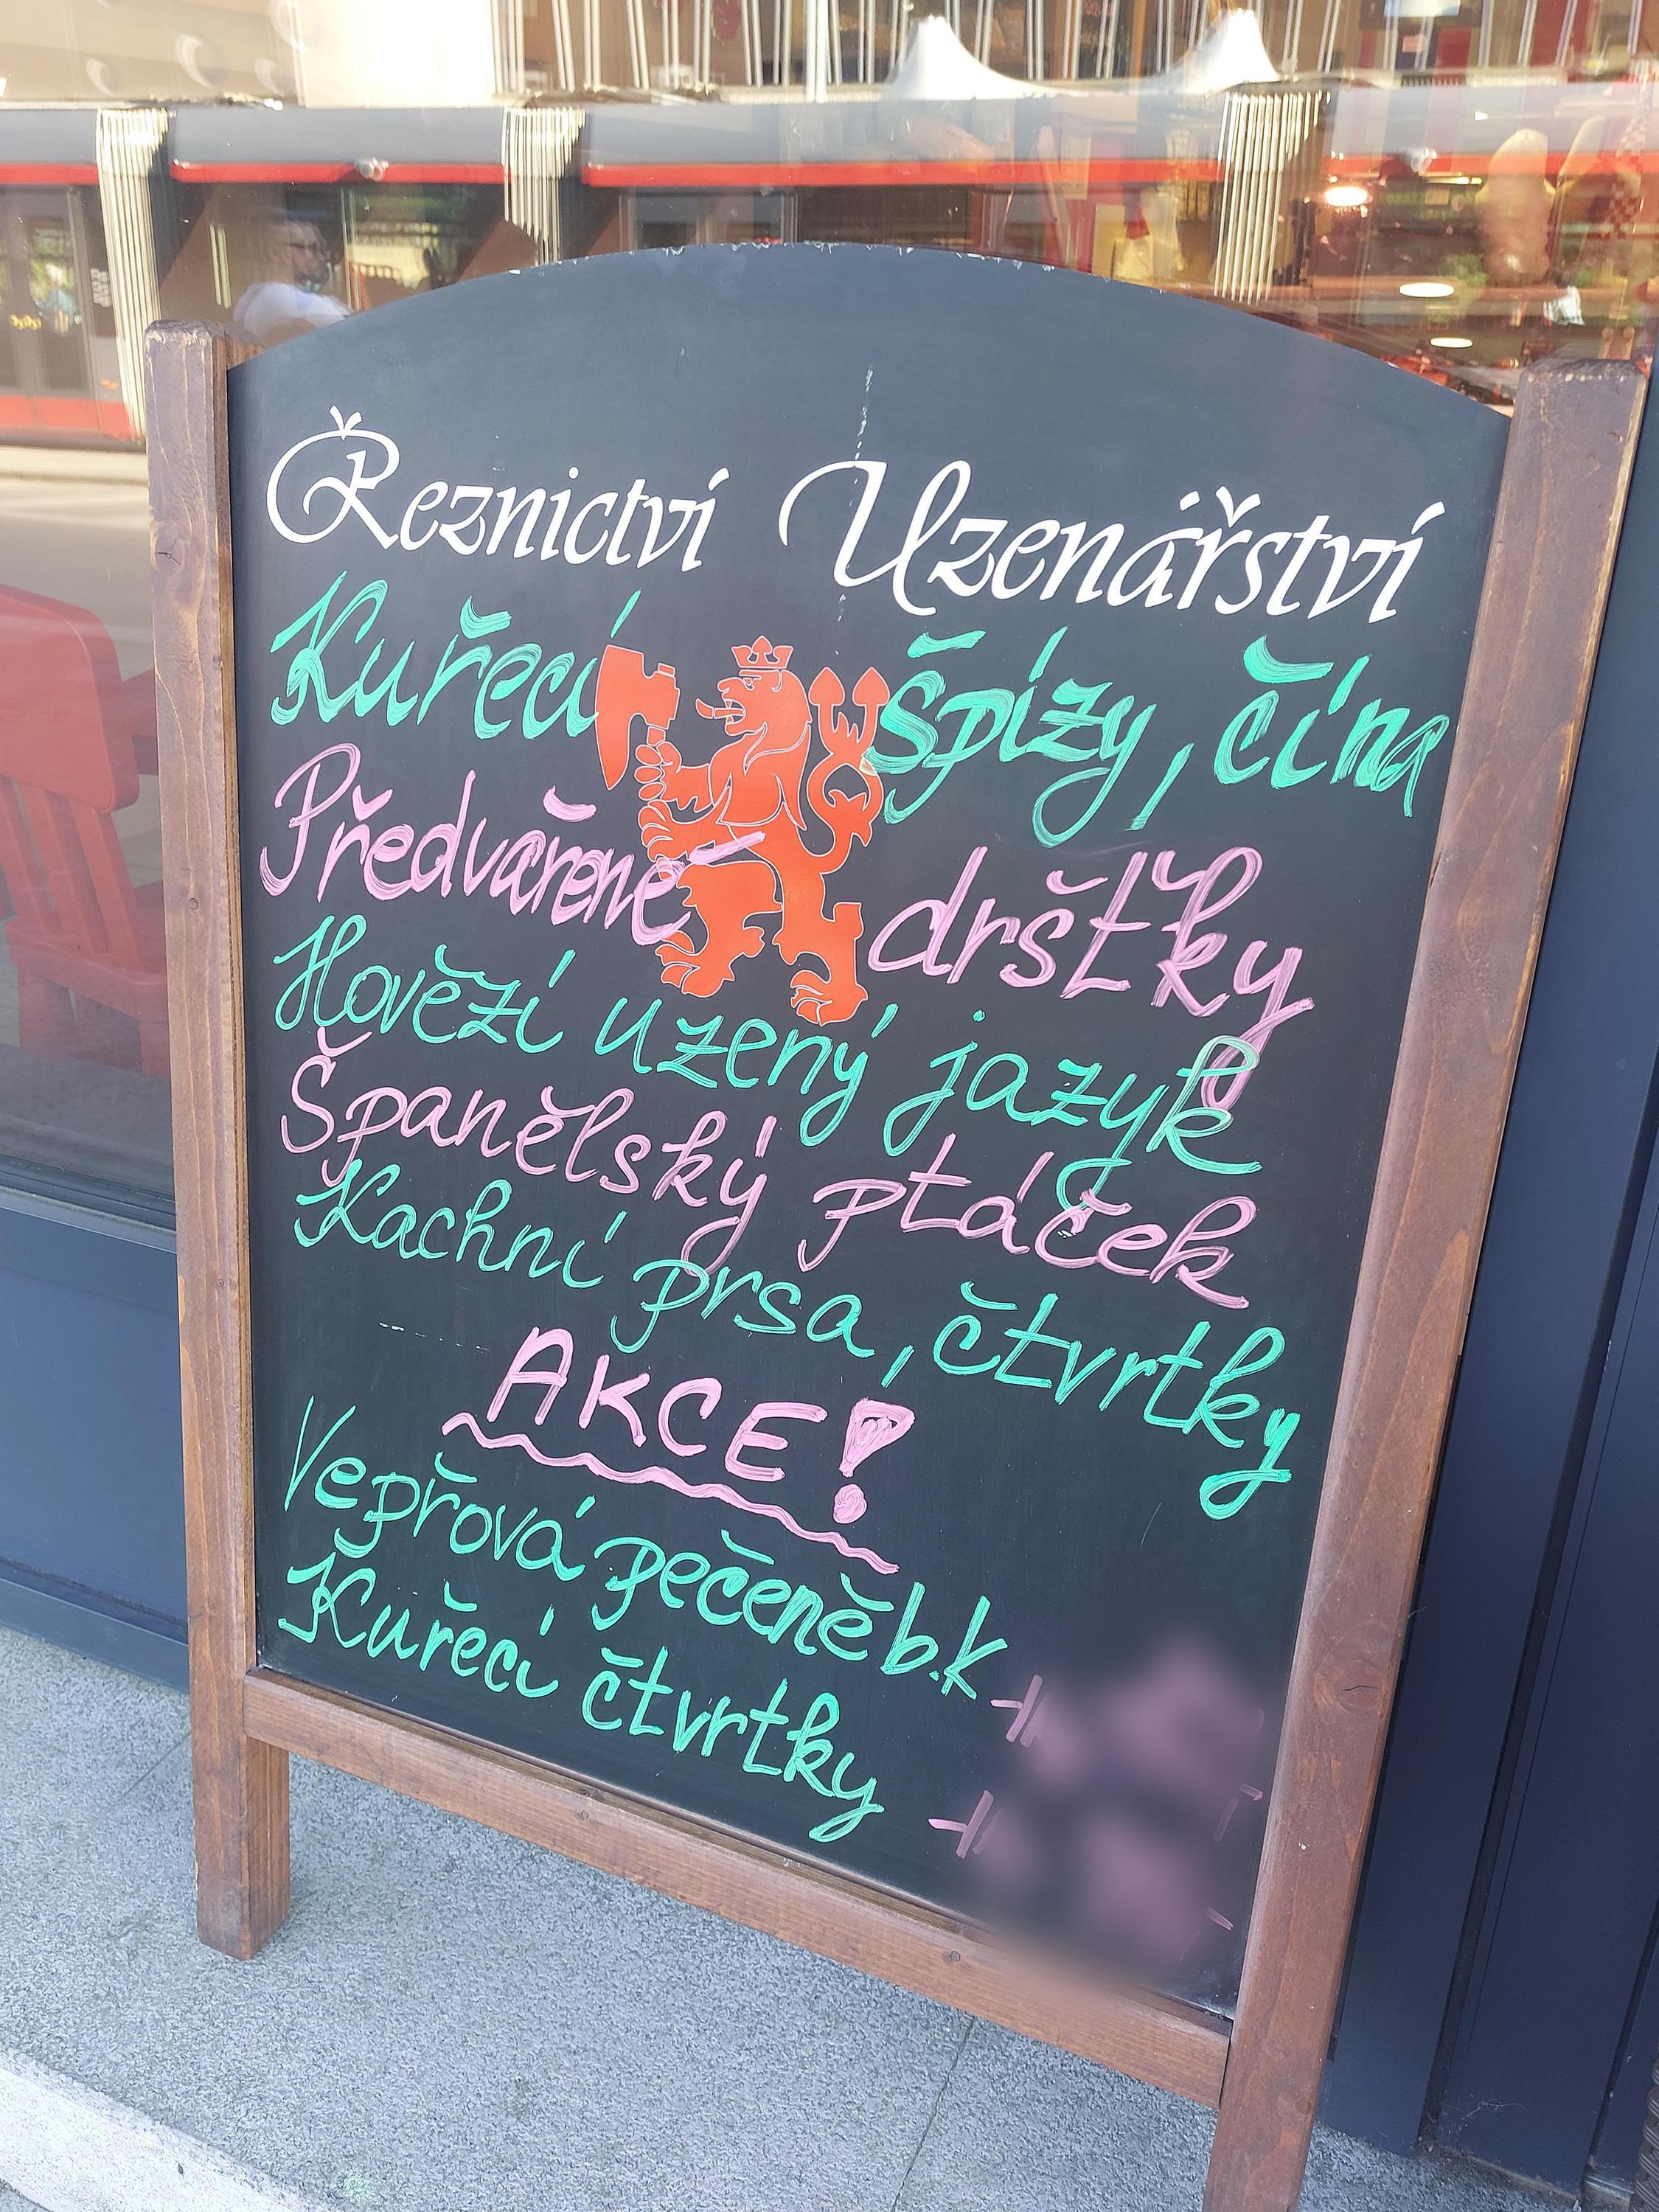 Řeznictví Uzenářství
Kuřecí špízy, čína
Předvařené dršťky
Hovězí uzený jazyk
Španělský ptáček
Kachní prsa, čtvrtky
AKCE!
Vepřová pečeně b.k
Kuřecí čtvrtky